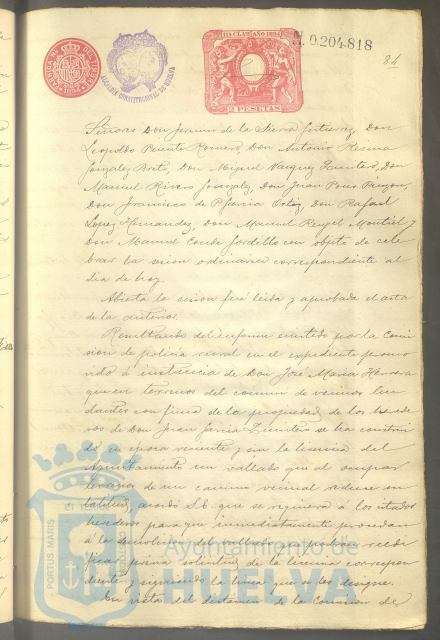 11ª CLASE AÑO 1894
N. 0.204.818
2 PESETAS
ALCALDIA CONSTITUCIONAL DE HUELVA
84
Señores Don Jerman de la Sierra Gutierrez, Don
Leopoldo Puente Romero, Don Antonio Resina
Gonzalez Brito, Don Miguel Vazquez Quintero, Don
Manuel Rivero Gonzalez, Don Juan Pons Pauzon,
Don Francisco de P. Garcia Ortiz, Don Rafael
Lopez Hernandez, Don Manuel Rengel Montiel y
Don Manuel Conde Gordillo con objeto de cele
brar la sesion ordinaria correspondiente al
dia de hoy.
Abierta la sesion fué leida y aprobada el acta
de la anterior.
Resultando del informe emitido por la Comi
sion de policia rural en el expediente promo
vido á instancia de Don José Maria Herrera
que en terrenos del comun de vecinos lin
dantes con finca de la propiedad de los herede
ros de Don Juan Garcia Quintero se ha construi
do en epoca reciente y sin la licencia del
Ayuntamiento un vallado que al ocupar
terrenos de un camino vecinal reduce su
latitud, acordó S.E. que se requiera á los citados
herederos para que inmediatamente procedan
á la demolicion del vallado que podran reedi
ficar previa solicitud de la licencia correspon
diente y siguiendo la linea que se les designe.
En vista del dictamen de la Comision de
PORTUS MARIS
Ayuntamiento de
HUELVA